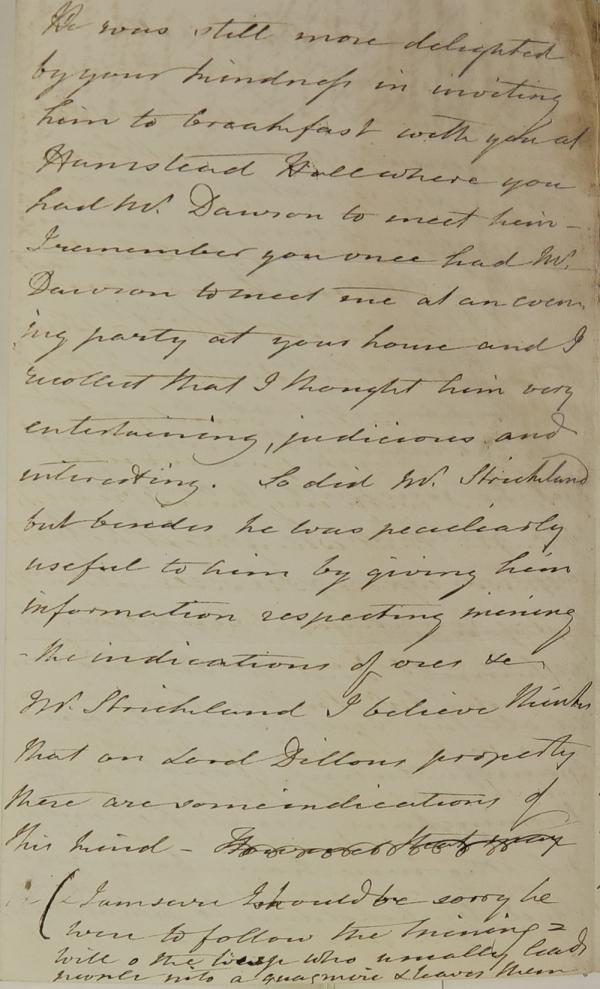 He was still more delighted
by your kindness in inviting
him to breakfast with you at
Hamstead Hall where you
had Mr. Dawson to meet him -
I remember you once had Mr.
Dawson to meet me at an even,
ing party at your house and I
recollect that I thought him very
entertaining, judicious and
interesting. So did Mr. Strickland
but besides he was peculiarly
useful to him by giving him
information respecting mining
- the indications of ores &c
Mr. Strickland I believe thinks
that on Lord Dillons property
there are some indications of
this kind - However that may
( I am sure I should be sorry he
were to follow the mining =
will o the wisp who usually leads
people into a quagmire & leaves them